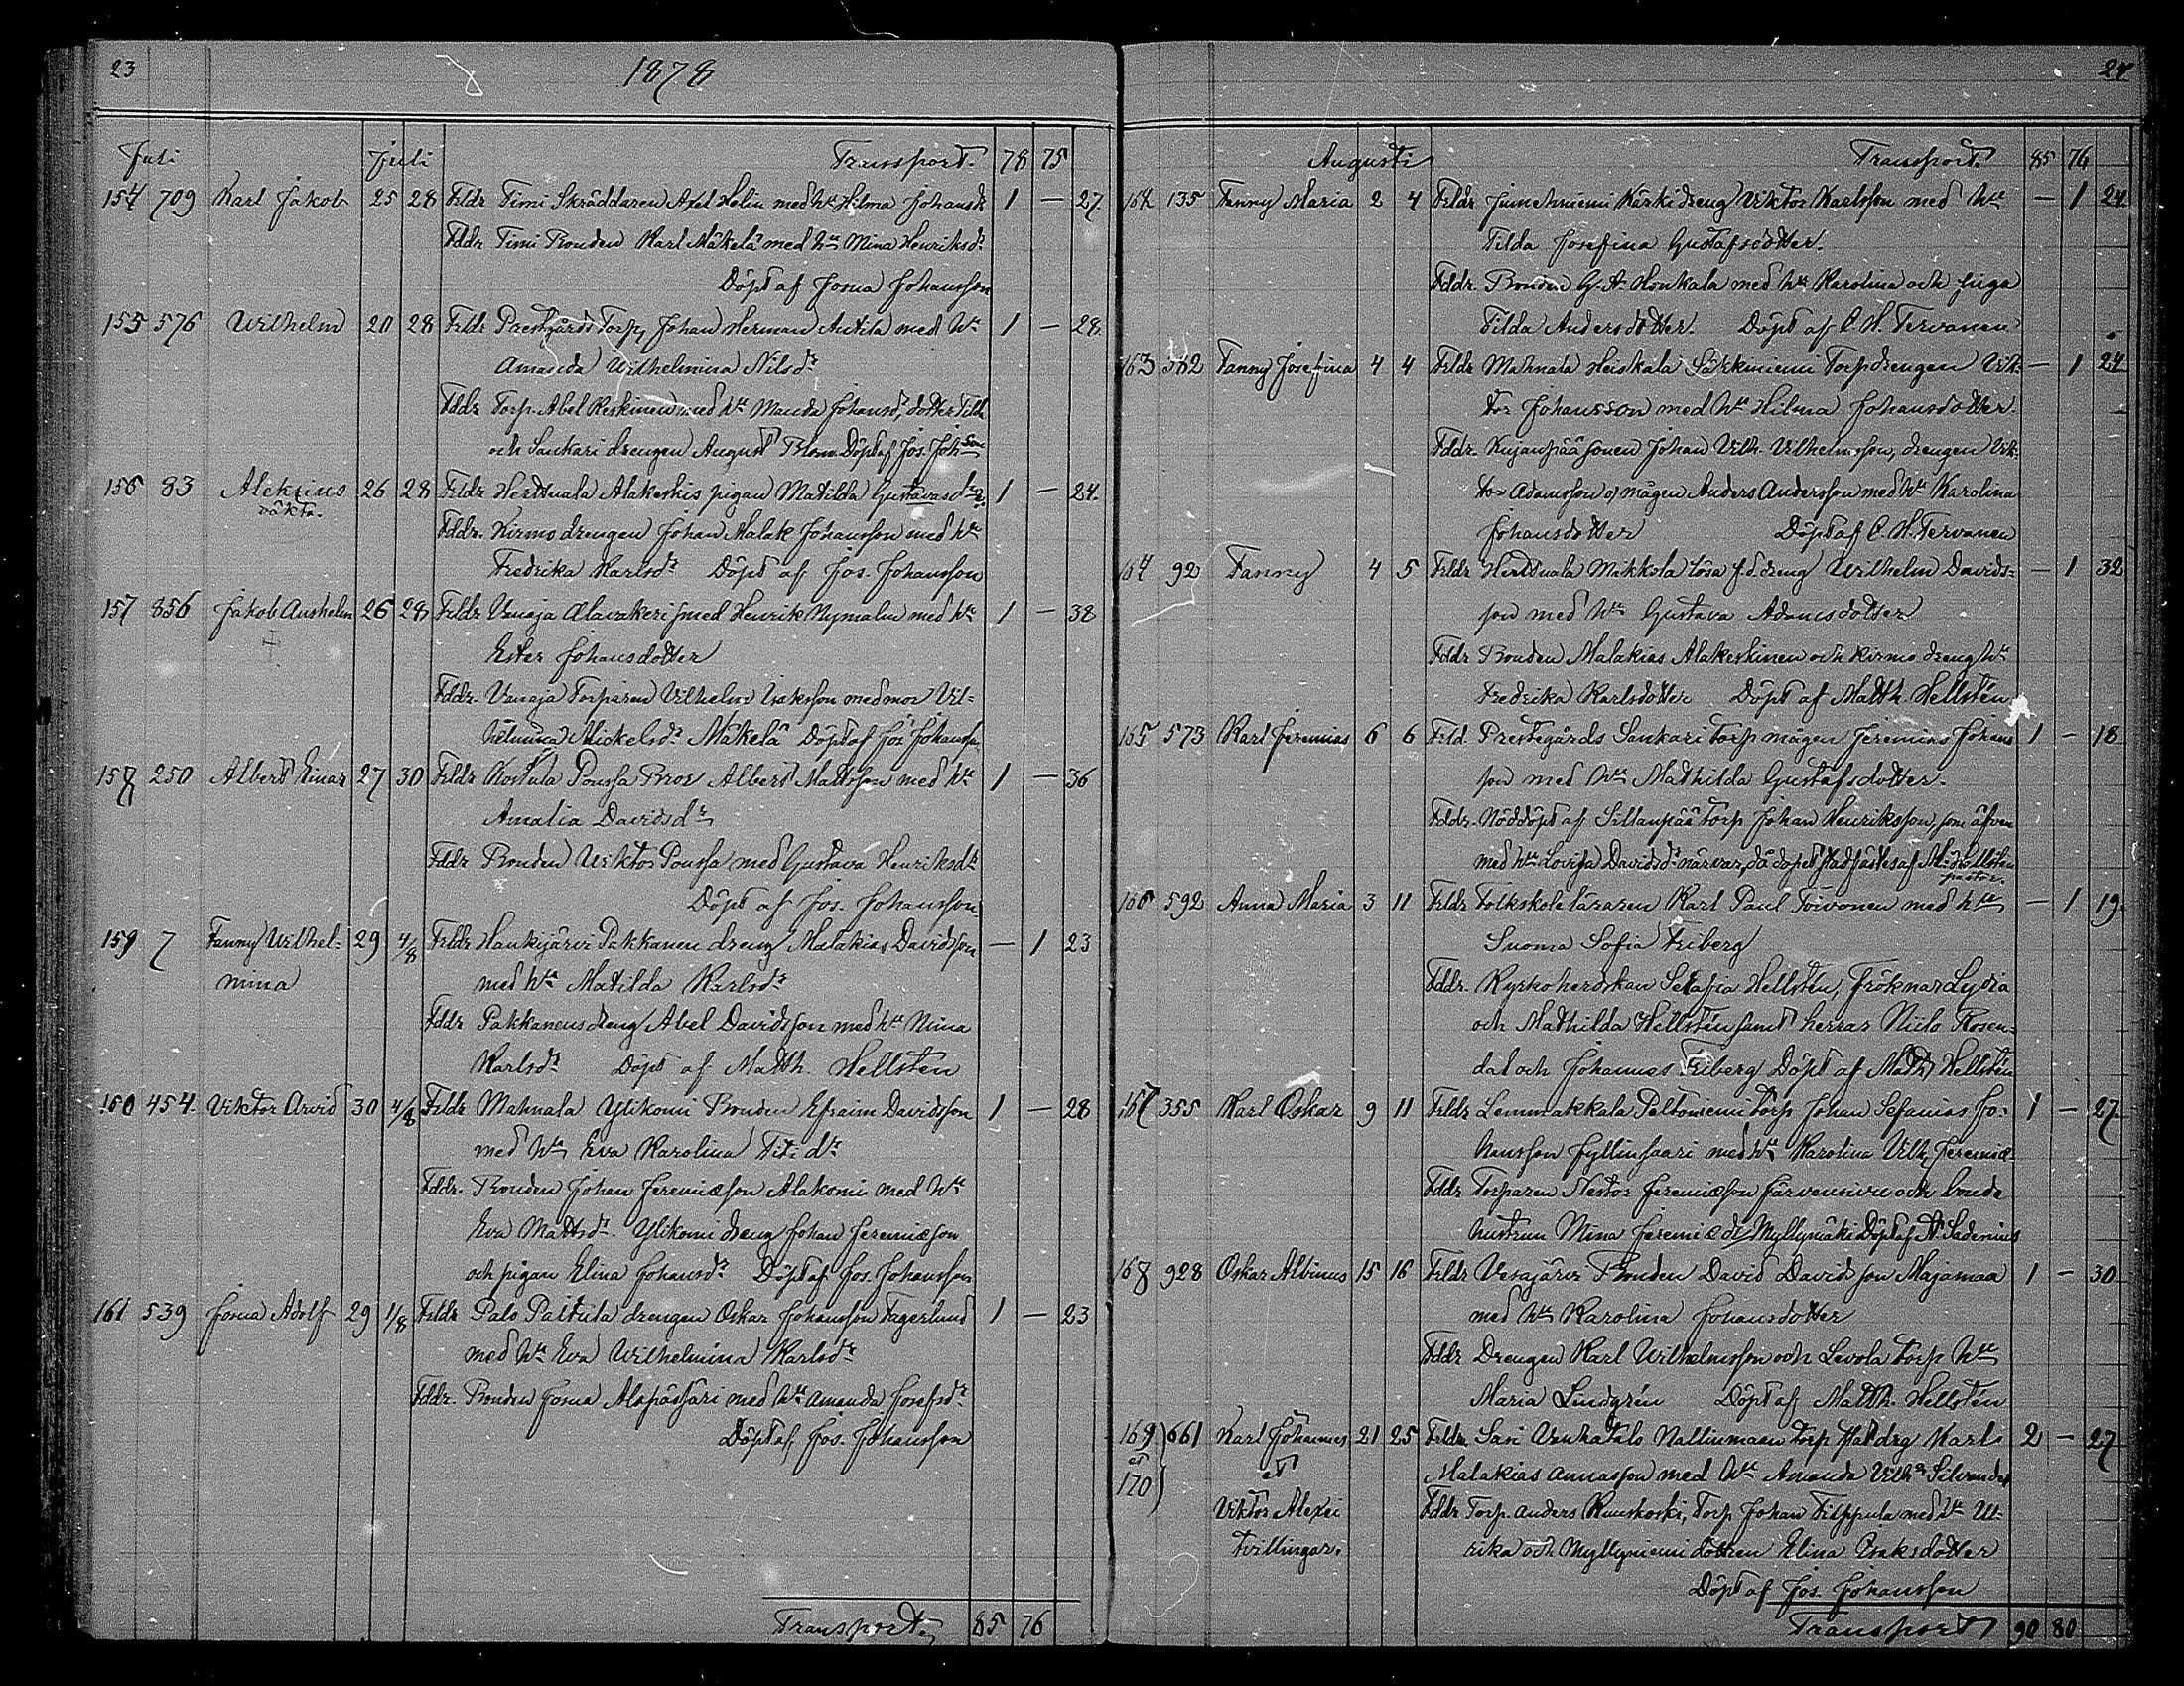 23
1878
Juli Juli Transport. 78 75
154 709 Karl Jakob 25 28 Frldr Timi Skräddaren Axel Helin med h. Hilma Johansdr 1 — 27
Fddr Timi Bonden Karl Mäkelä med hu Mina Henriksdr
Döpt af Josua Johansson
155 576 Wilhelm 20 28 Frldr Prestgårds Torp. Johan Herman Antila med hu 1 — 28.
Amanda Wilhelmina Nilsdr
Fddr Torp. Abel Keskinen med hu Manda Johansdr, dotter Tilda
och Sankari drengen August Blom Döpt af Jos. Johson
156 83 Aleksius 26 28 Frldr Herttuala Alakeskis pigan Matilda Gustavasdr 1 — 24.
oäkta.
Fddr. Kirmo drengen Johan Malak Johansson med hu
Fredrika Karlsdr Döpt af Jos. Johansson
157 856 Jakob Anshelm 26 28 Frldr Vanaja Alavakeri smed Henrik Nymalm med hu 1 — 38
Ester Johansdotter
Fddr. Vanaja Torparen Vilhelm Isaksson med mor Vil-
helmina Mickelsdr Mäkelä Döpt af Jos Johansson
158 250 Albert Einar 27 30 Frldr Kostula Poussa Bror Albert Mattsson med hu 1 — 36
Amalia Davidsdr
Fddr Bonden Viktor Poussa med Gustava Henriksdr
Döpt af Jos. Johansson
159 7 Fanny Wilhel- 29 4/8 Frldr Haukijärvi Pakkanen dreng Malakias Davidsson — 1 23
mina med hu Matilda Karlsdr
Fddr Pakkanens dreng Abel Davidsson med hu Mina
Karlsdr Döpt af Matth. Hellsten
160 454. Viktor Arvid 30 4/8 Frldr Mahnala Ylikomi Bonden Efraim Davidsson 1 — 28
med hu Eva Karolina Titi dr
Fddr. Bonden Johan Jeremiæson Alakomi med hu
Eva Mattsdr. Ylikomi dreng Johan Jeremiæson
och pigan Elina Johansdr Döpt af Jos. Johansson
161 539 Josua Adolf 29 1/8 Frldr Palo Paltula drengen Oskar Johansson Fagerlund 1 — 23
med hu Eva Wilhelmina Karlsdr
Fddr. Bonden Josua Alapässäri med hu Amanda Josefsdr
Döpt af Jos. Johansson
Transport. 85 76
24
Augusti Transport. 85 76
162 135 Fanny Maria 2 4 Frldr Jumesniemi Kärki dreng Viktor Karlsson med hu — 1 24
Tilda Josefina Gustafsdotter.
Fddr. Bonden G. A. Honkala med hu Karolina och piga
Tilda Andersdotter. Döpt af C. H. Tervanen
163 562 Fanny Josefina 4 4 Frldr Mahnala Heiskala Särkiniemi Torpdrengen Vik- — 1 24
tor Johansson med hu Hilma Johansdotter.
Fddr. Kujanpää sonen Johan Vilh. Vilhelmsson, drengen Vik-
tor Adamsson o, mågen Anders Andersson med hu Karolina
Johansdotter Döpt af C. H. Tervanen
164 92 Fanny 4 5 Frldr Herttuala Mikkola lösa f.d. dreng Wilhelm Davids- — 1 32
son med hu Gustava Adamsdotter
Fddr Bonden Malakias Alakeskinen och Kirmo dreng hu
Fredrika Karlsdotter Döpt af Matth. Hellstén
165 573 Karl Jeremias 6 6 Frld. Prestegårds Sankari Torp mågen Jeremias Johans 1 — 18
son med hu Mathilda Gustafsdotter.
Fddr. Nöddöpt af Sillanpää Torp Johan Henriksson, som äfven
med hu Lovisa Davidsdr närvar, då dopet stadfästes af M. Hellsten
pastor.
166 592 Anna Maria 3 11 Frldr Folkskoleläraren Karl Paul Toivonen med hu — 1 19.
Suoma Sofia Friberg
Fddr. Kyrkoherdskan Serafia Hellstén, Fröknar Lydia
och Mathilda Hellstén samt herrar Niilo Rosen-
dal och Johannes Friberg Döpt af Matth Hellstén
167 355 Karl Oskar 9 11 Frldr Lemmakkala Peltoniemi torp Johan Sefanias Jo- 1 — 27.
hansson Jyllinsaari med hu Karolina Vilh. Jeremiæ-
Fddr Torparen Nestor Jeremiæson Järvensivu och bonde
hustrun Mina Jeremiædr Myllymäki Döpt af A. Sadenius
168 928 Oskar Albinus 15 16 Frldr Vesajärvi Bonden David Davidsson Majamaa 1 — 30
med hu Karolina Johansdotter
Fddr Drengen Karl Wilhelmsson och Levola Torp hu
Maria Lindgrén Döpt af Matth. Hellstén
169 661 Karl Johannes 21 25 Frldr. Sasi Vanhatalo Kallinmaan torp Stat drg Karl 2 — 27
et et Malakias Annasson med hu Amanda Vilh. Silvander
170
Viktor Alexei Fddr Torp. Anders Kuuskoski, Torp Johan Filppula med hu Ul-
Tvillingar. rika och Myllyniemi dottren Elina Isaksdotter
Döpt af Jos. Johansson
Transport 90 80